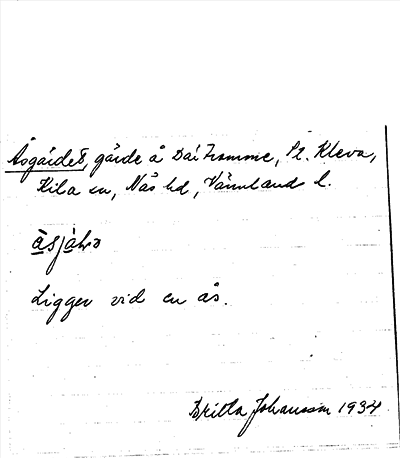 Åsgärdet, gärde å Där framme, St. Kleva,
Kila sn, Näs hd, Värmlands l.
Ligger vid en ås.
Britta Johansson 1934